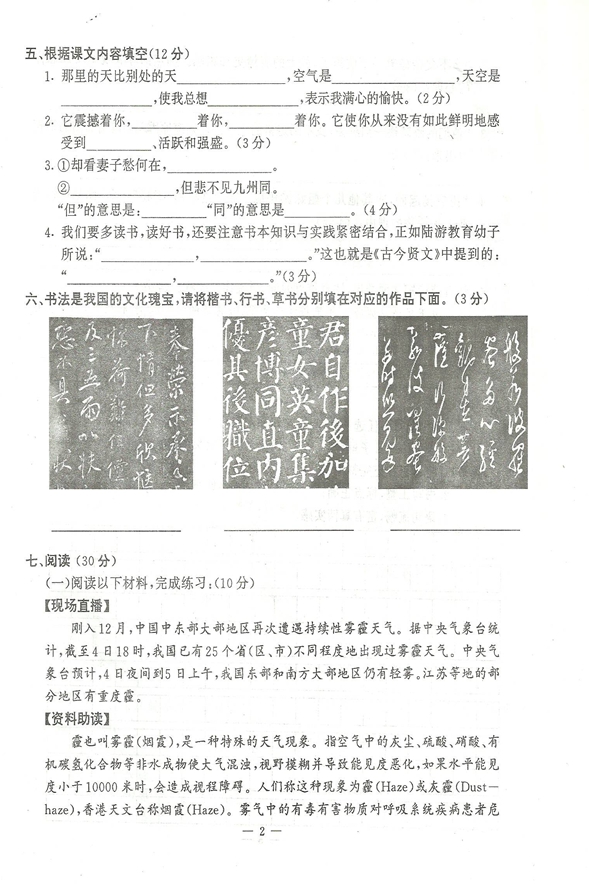 五、根据课文内容填空(12分)
1. 那里的天比别处的天________________,空气是________________,天空是
____________,使我总想____________,表示我满心的愉快。(2分)
2. 它震撼着你,________着你,________着你。它使你从来没有如此鲜明地感
受到________、活跃和强盛。(3分)
3. ①却看妻子愁何在,______________。
②______________,但悲不见九州同。
“但”的意思是:________“同”的意思是________。(4分)
4. 我们要多读书,读好书,还要注意书本知识与实践紧密结合,正如陆游教育幼子
所说:“____________,______________。”这也就是《古今贤文》中提到的:
“______________,____________。”(3分)
六、书法是我国的文化瑰宝,请将楷书、行书、草书分别填在对应的作品下面。(3分)
君自作後加
童女英童集
彦博同直内
優具後職位
七、阅读(30分)
(一)阅读以下材料,完成练习:(10分)
【现场直播】
刚入12月,中国中东部大部地区再次遭遇持续性雾霾天气。据中央气象台统
计,截至4日18时,我国已有25个省(区、市)不同程度地出现过雾霾天气。中央气
象台预计,4日夜间到5日上午,我国东部和南方大部地区仍有轻雾。江苏等地的部
分地区有重度霾。
【资料助读】
霾也叫雾霾(烟霞),是一种特殊的天气现象。指空气中的灰尘、硫酸、硝酸、有
机碳氢化合物等非水成物使大气混浊,视野模糊并导致能见度恶化,如果水平能见
度小于10000米时,会造成视程障碍。人们称这种现象为霾(Haze)或灰霾(Dust—
haze),香港天文台称烟霞(Haze)。雾气中的有毒有害物质对呼吸系统疾病患者危
— 2 —